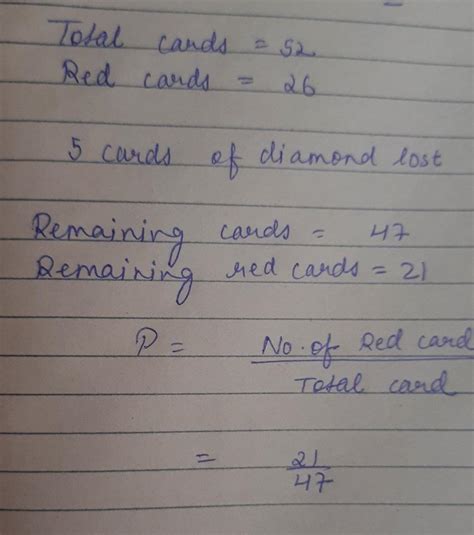 Total cards = 52
Red cards = 26
5 cards of diamond lost
Remaining cards = 47
Remaining red cards = 21
P = No. of Red card
Total card
= 21
47